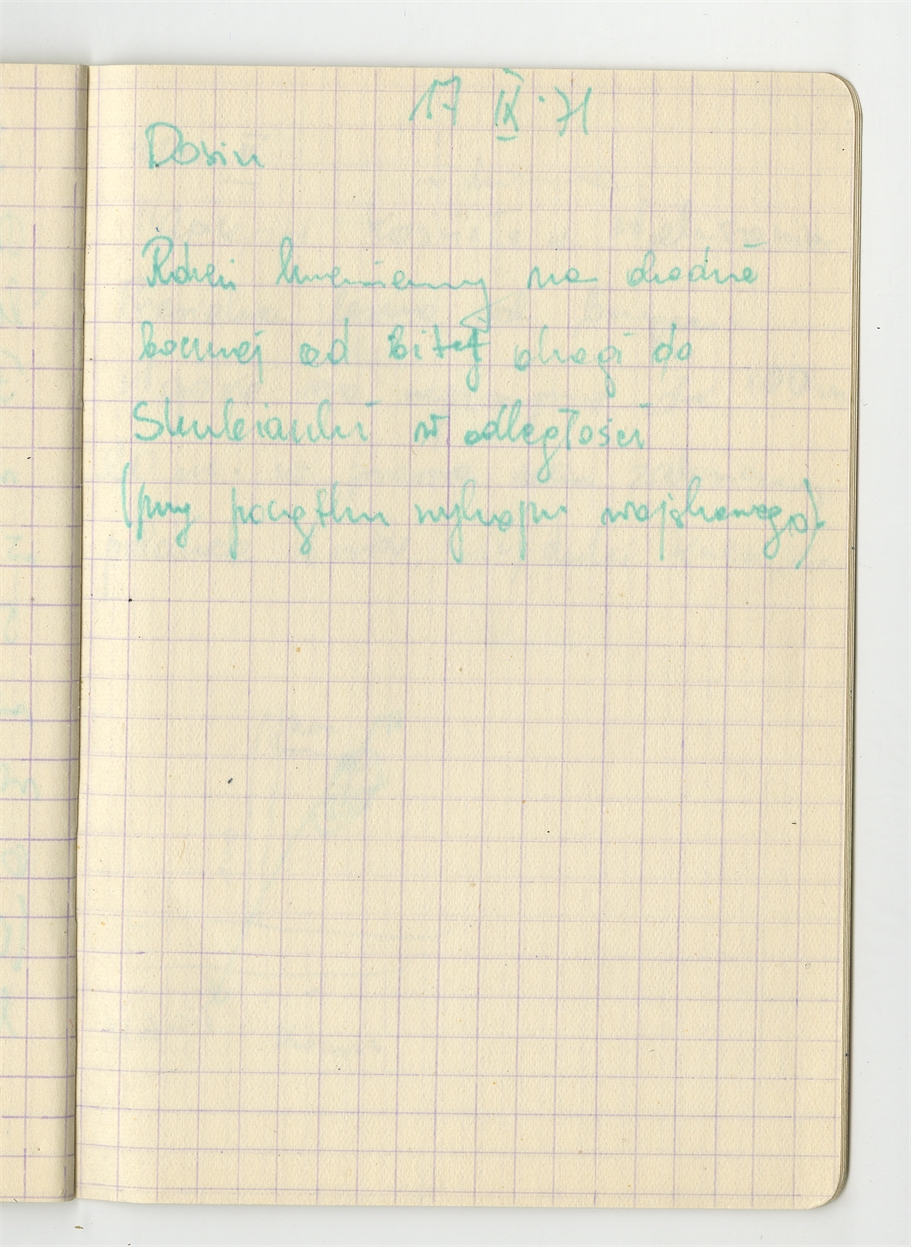 17 IX 71
Dosin
Rdzeń krzemienny na drodze
bocznej od bitej drogi do
Skubianki w odległości
(przy początku wykopu wojskowego)